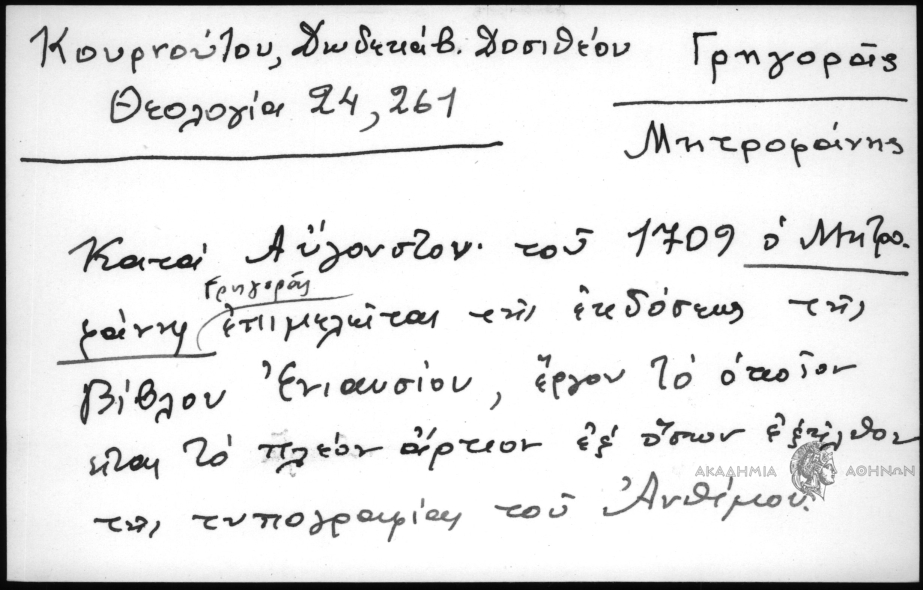 Κουρνούτου, Δωδεκάβ. Δοσιθέου
Θεολογία 24, 261
Γρηγορᾶς
Μητροφάνης
Κατά Αὔγουστον τοῦ 1709 ὁ Μητρο-
φάνης Γρηγορᾶς ἐπιμελεῖται τῆς ἐκδόσεως τῆς
Βίβλου Ἐνιαυσίου, ἔργον τό ὁποῖον
εἶναι τό πλέον ἄρτιον ἐξ ὅσων ἐξῆλθον
τῆς τυπογραφίας τοῦ Ἀνθίμου.
ΑΚΑΔΗΜΙΑ ΑΘΗΝΩΝ